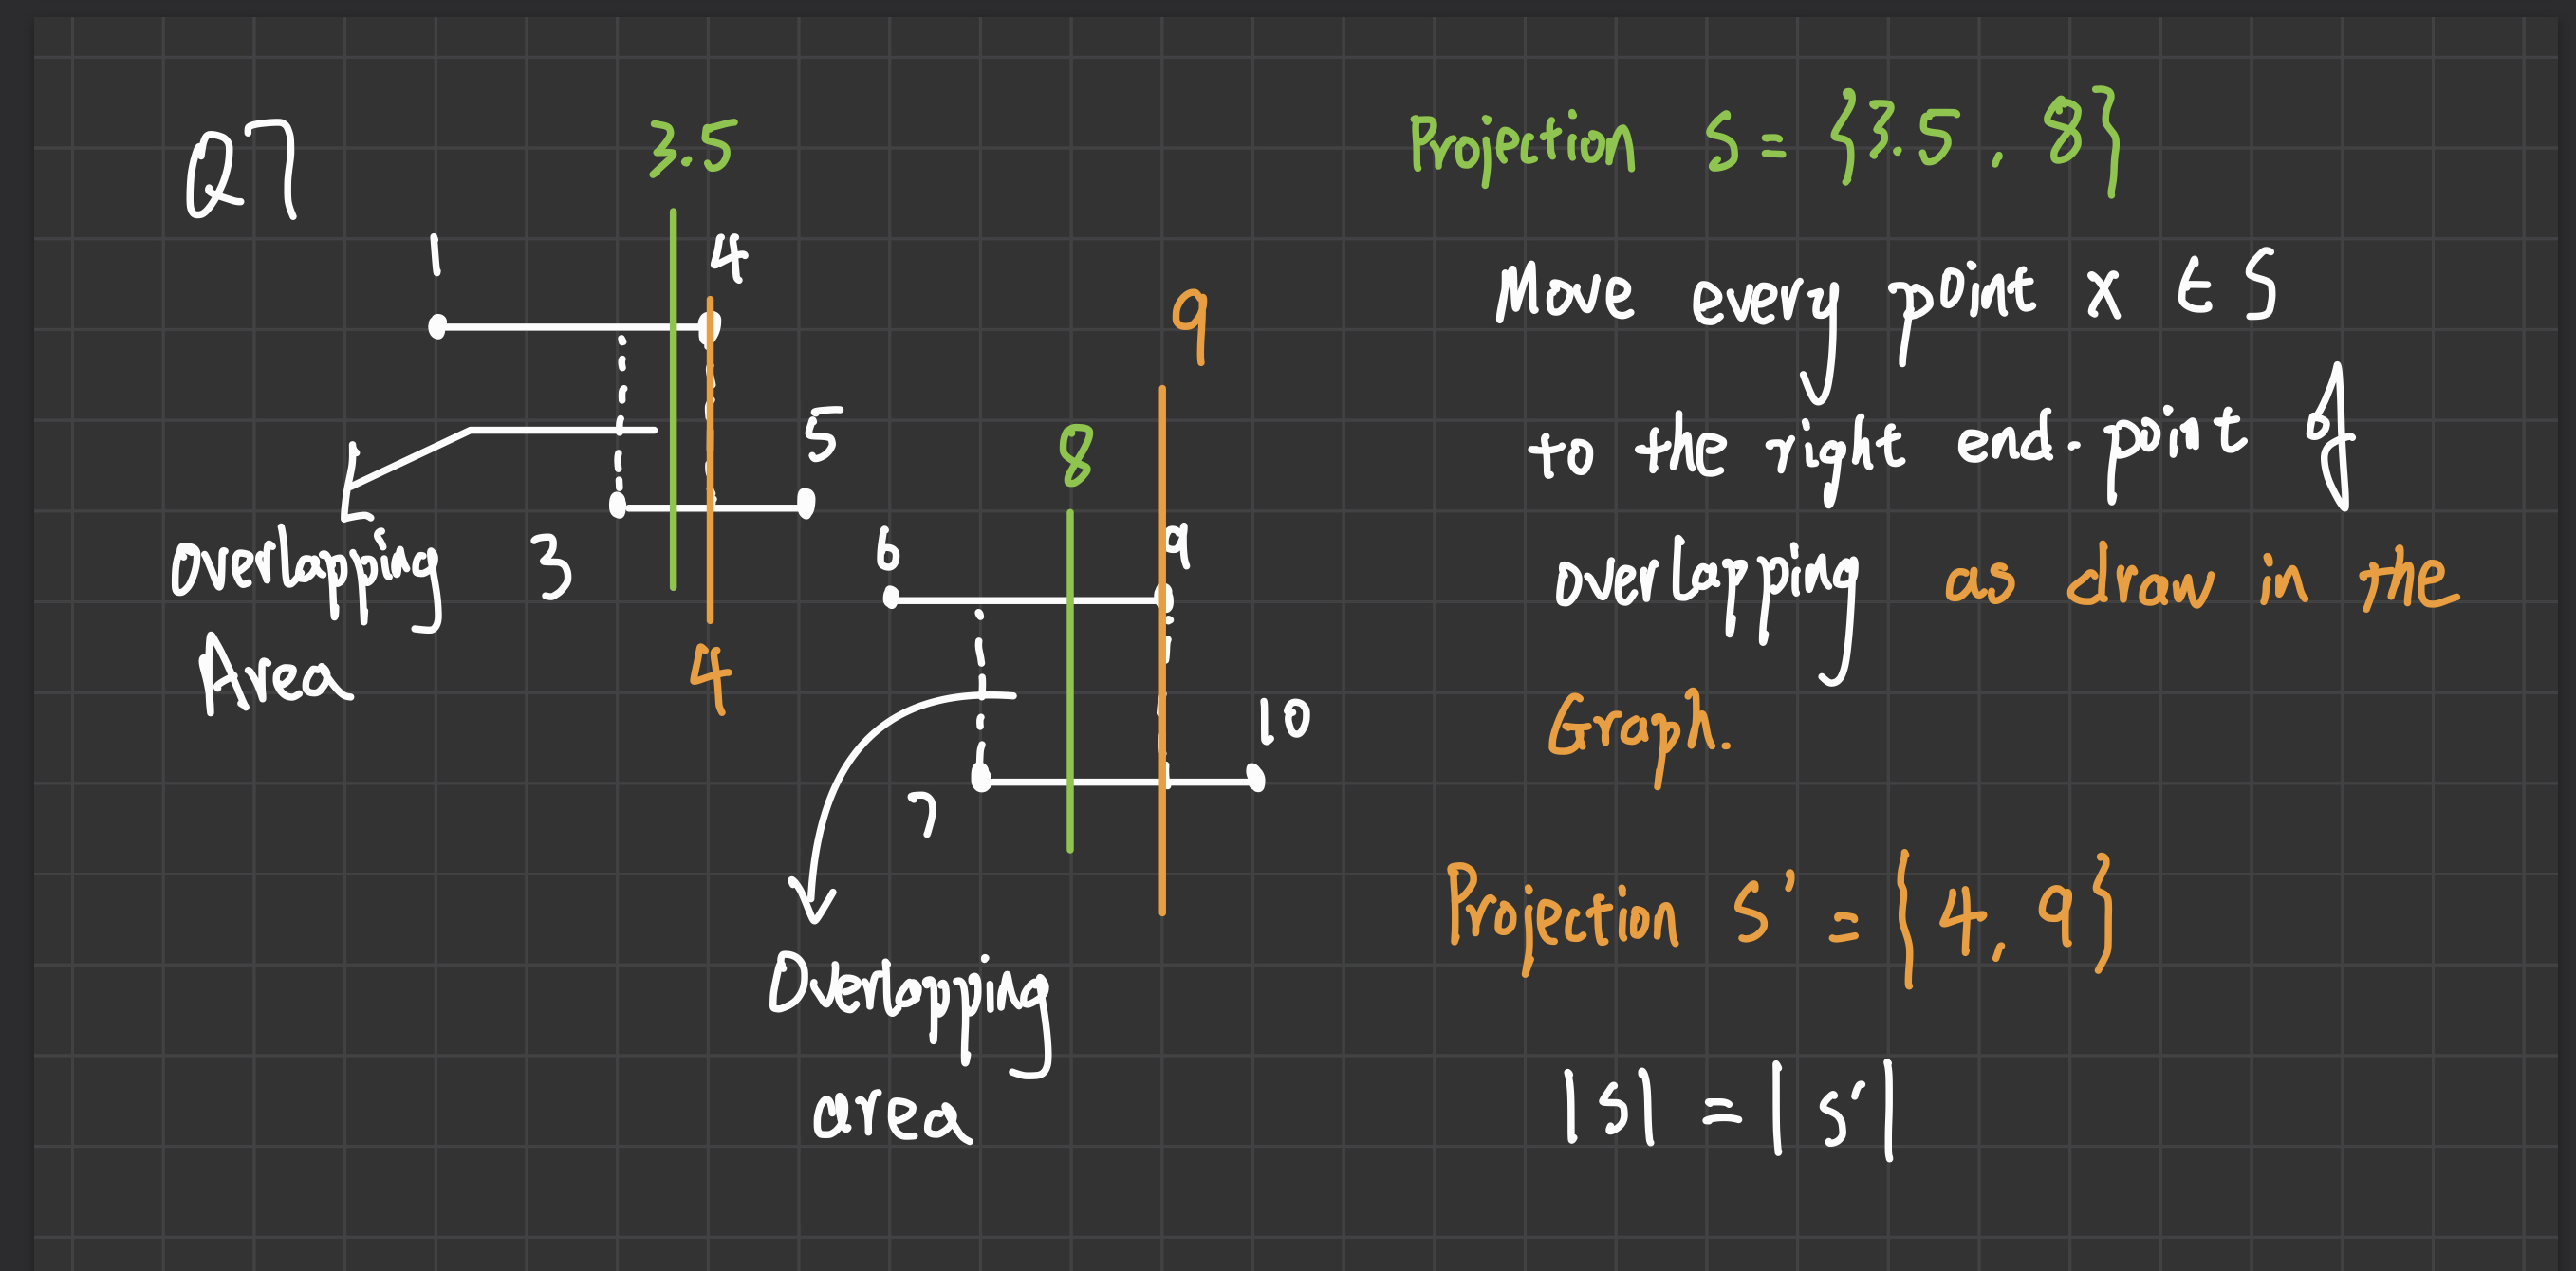 Q7
3.5
1
4
5
3
4
overlapping
Area
9
8
6
9
10
7
Overlapping
area
Projection S = {3.5, 8}
Move every point x ∈ S
to the right end-point of
overlapping as draw in the
Graph.
Projection S' = {4, 9}
|S| = |S'|